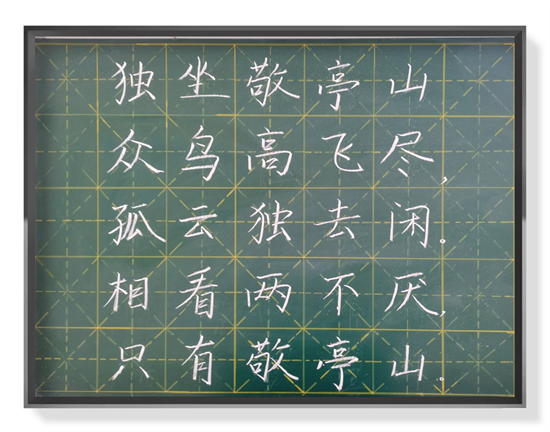 独坐敬亭山
众鸟高飞尽,
孤云独去闲。
相看两不厌,
只有敬亭山。